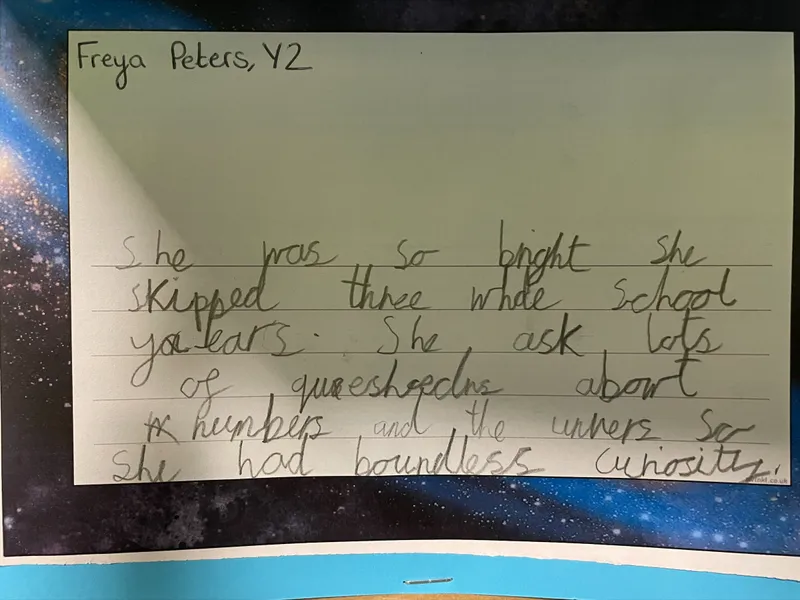 Freya Peters, Y2
She was so bright she
skipped three whole school
years. She ask lots
of queeshedns abowt
numbers and the unners so
she had boundless curiosity.